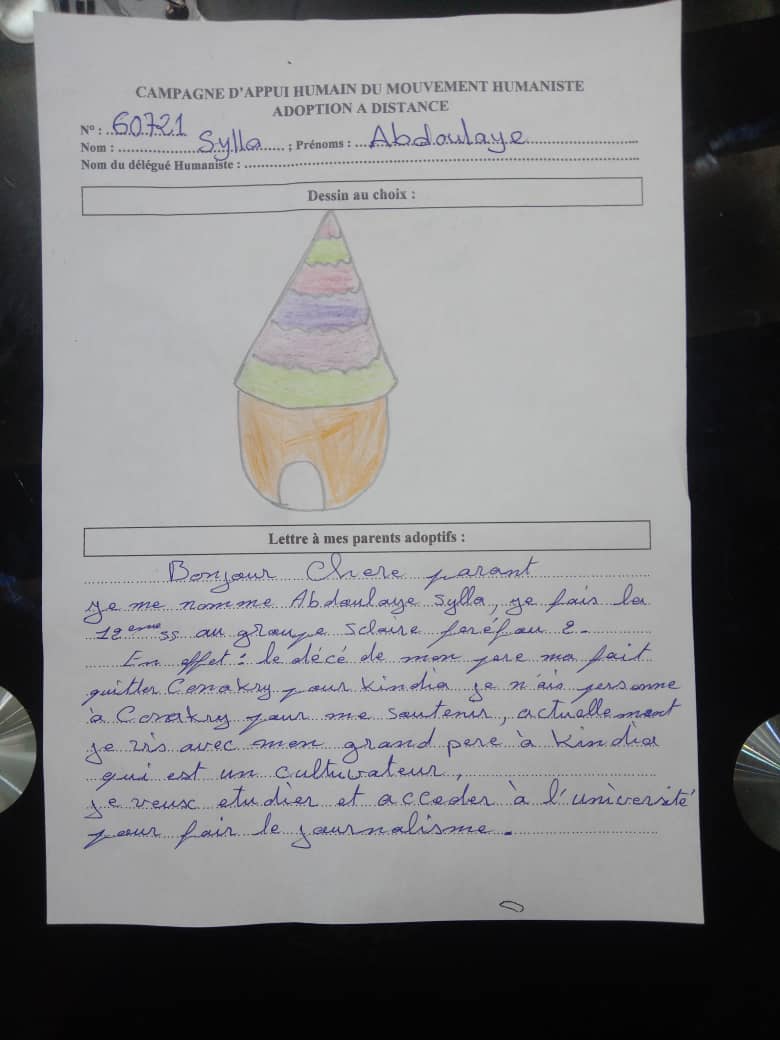 CAMPAGNE D'APPUI HUMAIN DU MOUVEMENT HUMANISTE
ADOPTION A DISTANCE
N° : 60721
Nom : Sylla ; Prénoms : Abdoulaye
Nom du délégué Humaniste :
Dessin au choix :
Lettre à mes parents adoptifs :
Bonjour Chere parant
je me nomme Abdoulaye Sylla, je fais la
12eme ss au groupe Sclaire 2.
En effet : le décé de mon pere ma fait
quitter Conakry pour kindia je n'ais personne
à Conakry pour me soutenir, actuellement
je vis avec mon grand pere à kindia
qui est un cultuvateur,
je veux etudier et acceder à l'université
pour fair le journalisme.